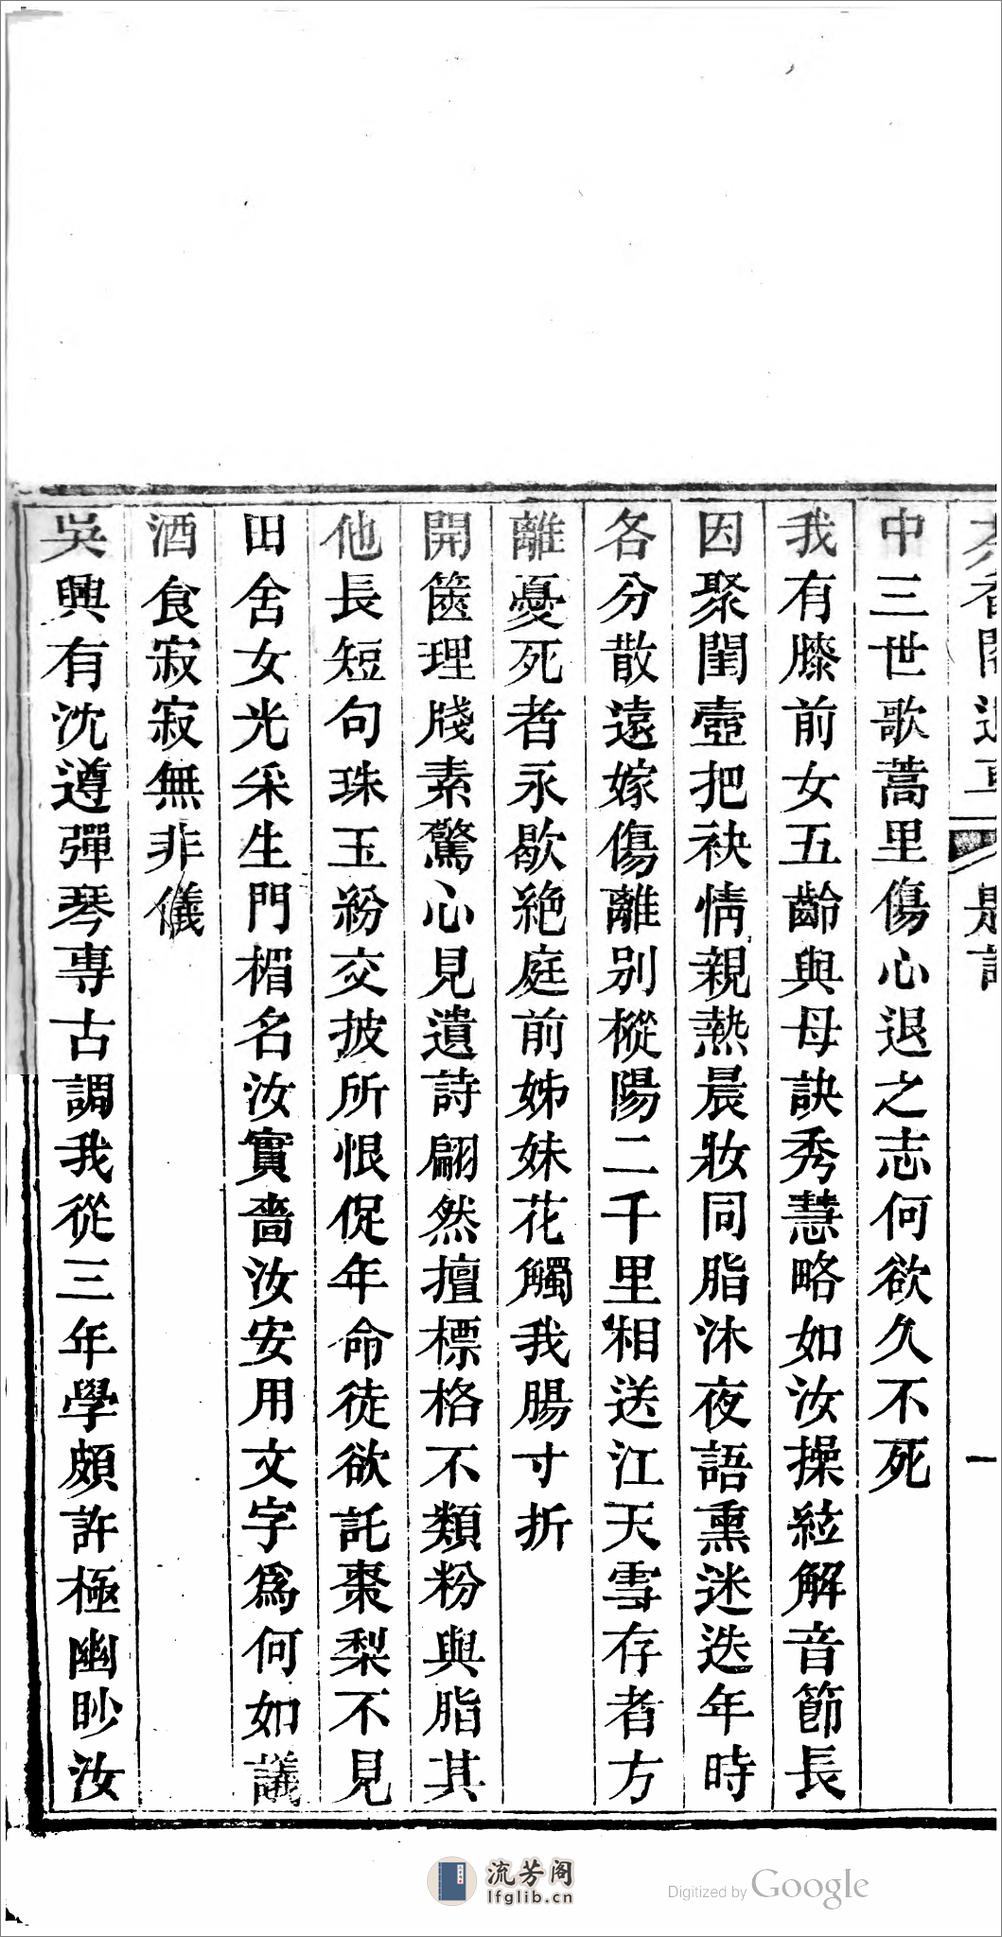 中三世歌蒿里傷心退之志何欲久不死
我有膝前女五齡與母訣秀慧略如汝操絃解音節長
因聚閨壼把袂情親熱晨妝同脂沐夜語熏迷迭年時
各分散遠嫁傷離別樅陽二千里相送江天雪存者方
離憂死者永歇絶庭前姊妹花觸我腸寸折
開篋理牋素驚心見遺詩翩然擅標格不類粉與脂其
他長短句珠玉紛交披所恨促年命徒欲託棗梨不見
田舍女光采生門楣名汝實嗇汝安用文字為何如議
酒食寂寂無非儀
吳興有沈遵彈琴專古調我從三年學頗許極幽眇汝
流芳阁
lfglib.cn
Digitized by Google